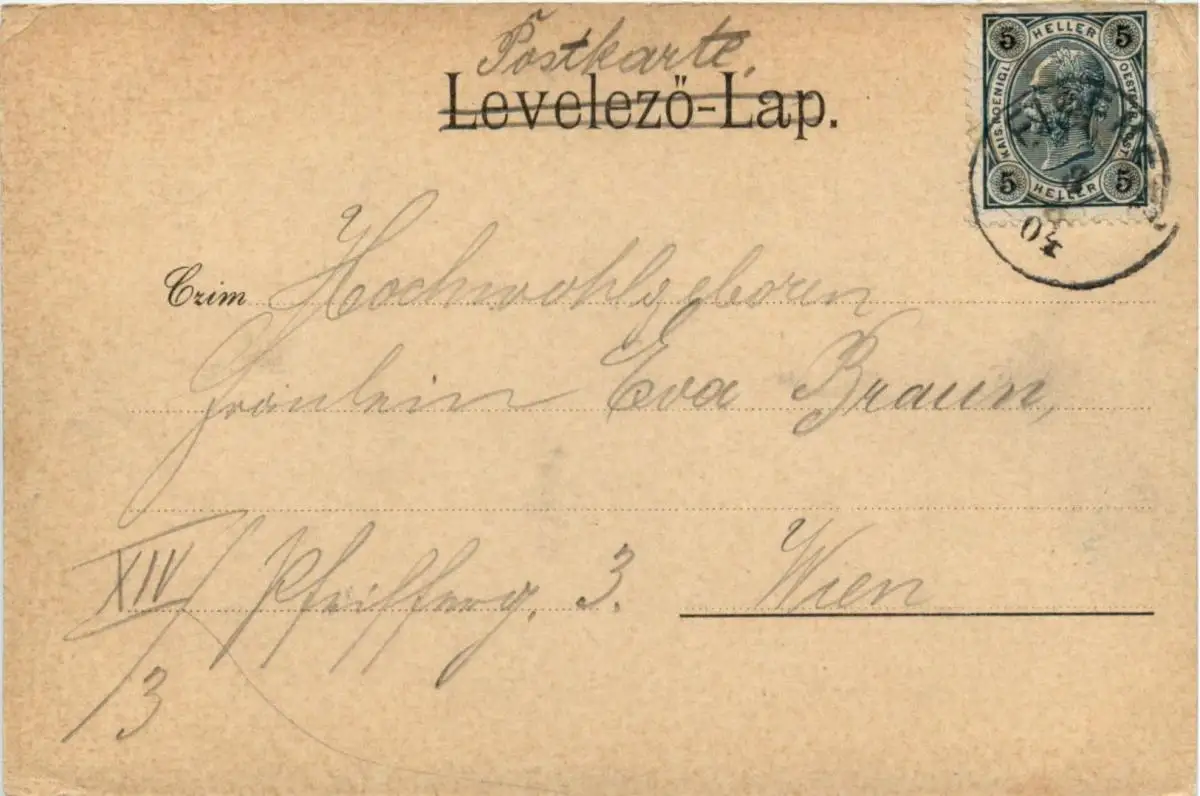 Postkarte.
Levelező-Lap.
HELLER
5 5
KAIS. KOENIGL. OESTERR. POST
5 5
HELLER
30
Czim Hochwohlgeboren
Fräulein Eva Braun,
XIV/3 Pfeifferg. 3. Wien